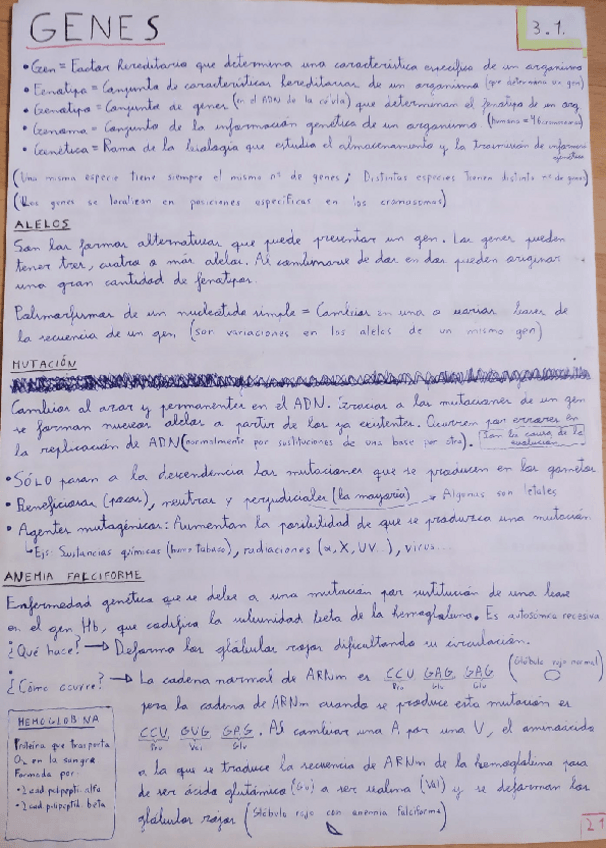 GENES
3.1.
• Gen = Factor hereditario que determina una característica específica de un organismo
• Fenotipo = Conjunto de características hereditarias de un organismo (que determina un gen)
• Genotipo = Conjunto de genes (en el ADN de la célula) que determinan el fenotipo de un org.
• Genoma = Conjunto de la información genética de un organismo (humano = 46 cromosomas)
• Genética = Rama de la biología que estudia el almacenamiento y la trasmisión de información
genética
(Una misma especie tiene siempre el mismo nº de genes; Distintas especies tienen distinto nº de genes)
(Los genes se localizan en posiciones específicas en los cromosomas)
ALELOS
Son las formas alternativas que puede presentar un gen. Los genes pueden
tener tres, cuatro o más alelos. Al combinarse de dos en dos pueden originar
una gran cantidad de fenotipos.
Polimorfismos de un nucleótido simple = Cambios en una o varias bases de
la secuencia de un gen (son variaciones en los alelos de un mismo gen)
MUTACIÓN
Cambios al azar y permanentes en el ADN. Gracias a las mutaciones de un gen
se forman nuevos alelos a partir de los ya existentes. Ocurren por errores en
la replicación de ADN (normalmente por sustituciones de una base por otra). Son la causa de la
evolución
• SÓLO pasan a la descendencia las mutaciones que se producen en los gametos
• Beneficiosas (pocas), neutras y perjudiciales (la mayoría) → Algunas son letales
• Agentes mutagénicos: Aumentan la posibilidad de que se produzca una mutación
Ejs: Sustancias químicas (humo tabaco), radiaciones (α, X, UV...), virus...
ANEMIA FALCIFORME
Enfermedad genética que se debe a una mutación por sustitución de una base
en el gen Hb, que codifica la subunidad beta de la hemoglobina. Es autosómica recesiva
¿Qué hace? → Deforma los glóbulos rojos dificultando su circulación.
¿Cómo ocurre? → La cadena normal de ARNm es CCU GAG GAG (Glóbulo rojo normal)
Pro Glu Glu
pero la cadena de ARNm cuando se produce esta mutación es
CCU GUG GAG. Al cambiar una A por una U, el aminoácido
Pro Val Glu
a la que se traduce la secuencia de ARNm de la hemoglobina pasa
de ser ácido glutámico (Glu) a ser valina (Val) y se deforman los
glóbulos rojos (Glóbulo rojo con anemia falciforme)
HEMOGLOBINA
Proteína que trasporta
O₂ en la sangre
Formada por:
• 2 cad polipeptí. alfa
• 2 cad polipeptid beta
21